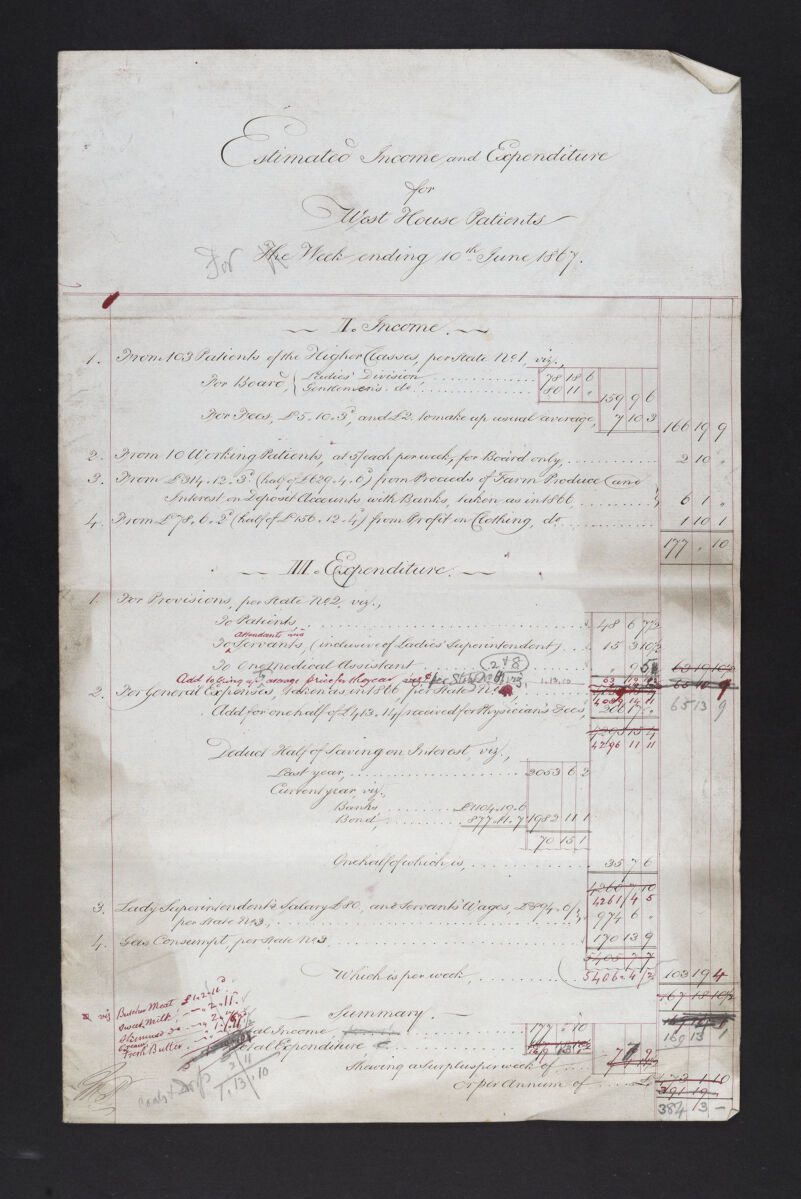 Estimated Income and Expenditure
for
West House Patients
For The Week ending 10th June 1867.
I. Income.
1. From 103 Patients of the Higher Classes, per State No. 1, viz.,
For Board, { Ladies' Division 78 18 6
Gentlemen's do. 80 11 " 159 9 6
For Fees, £5.10.3, and £2. to make up usual average, 7 10 3 166 19 9
2. From 10 Working Patients, at 5/ each per week, for Board only, 2 10 "
3. From £314.12.3 (half of £629.4.6) from Proceeds of Farm Produce and
Interest on Deposit Accounts with Banks, taken as in 1866, 6 1 "
4. From £78.6.2 (half of £156.12.4) from Profit on Clothing, &c. 1 10 1
177 " 10
II. Expenditure.
1. For Provisions, per State No. 2, viz.,
To Patients, 48 6 7½
Attendants and
To Servants, (inclusive of Ladies' Superintendent) 15 3 10½
To One Medical Assistant " 9 5
2 & 8
Add to bring up average price for the year 1.13.10 63 19
2. For General Expenses, taken as in 1866 per State No. 4039 14 11 65 13 9
Add for one half of £413.14/ received for Physician's Fees, 206 17 "
4296 11 11
Deduct Half of Saving on Interest, viz.,
Last year, 2053 6 2
Current year, viz.,
Banks £1104.19.6
Bond, 877.11.7 1982 11 1
70 15 1
One half of which is, 35 7 6
4260 7 10
4261 4 5
3. Lady Superintendent's Salary £80, and Servants' Wages, £894.6/,
per State No. 3, 974 6 "
4. Gas Consumpt, per State No. 3 170 13 9
5405 7 7
5406 4 2 
Which is per week, 103 19 4
167 18 10½
169 13 1
viz Butcher Meat £1.2.11
Sweet Milk " 2.11
Skimmed do
Fresh Butter
Summary.
Total Income 177 " 10
Total Expenditure 7 7 9
Shewing a Surplus per week of
Or per Annum of £473 1 10
391 19
384 13 –
2/11
1.13.10